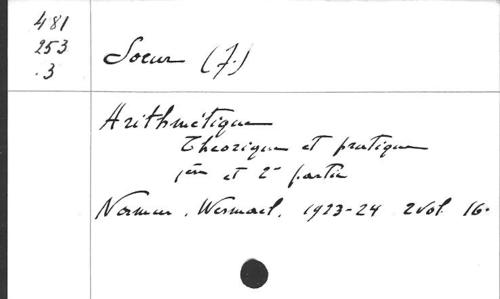 481
253
.3
Soeur (J.)
Arithmétique
Théorique et pratique
1ère et 2e partie
Namur. Wesmael. 1923-24 2 vol. 16.